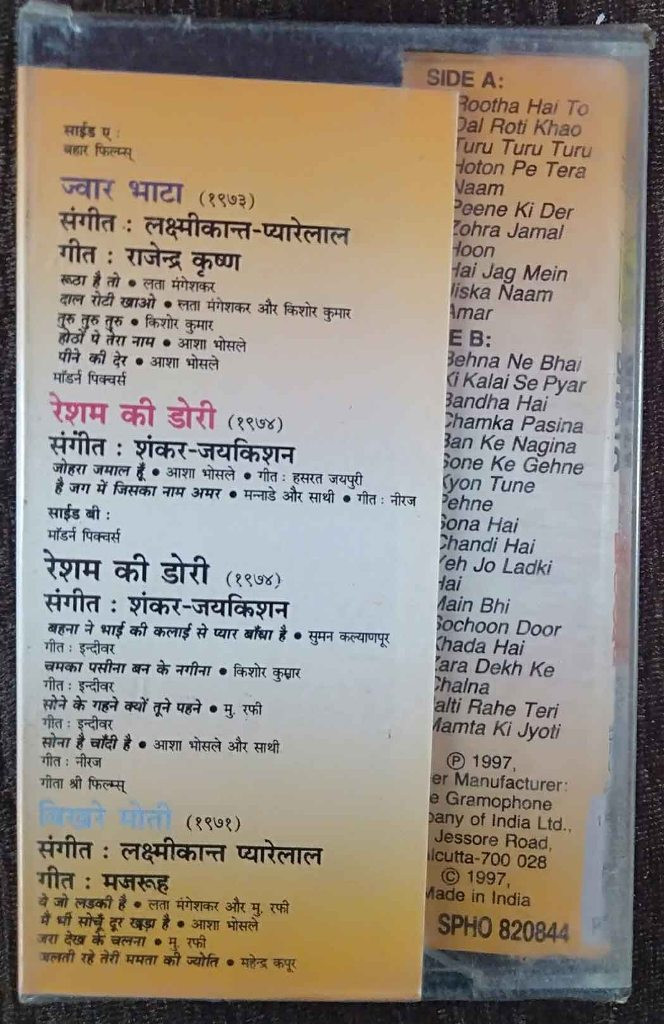 साईड ए :
बहार फिल्म्स्
ज्वार भाटा (१९७३)
संगीत : लक्ष्मीकान्त-प्यारेलाल
गीत : राजेन्द्र कृष्ण
रूठा है तो • लता मंगेशकर
दाल रोटी खाओ • लता मंगेशकर और किशोर कुमार
तुरु तुरु तुरु • किशोर कुमार
होठों पे तेरा नाम • आशा भोसले
पीने की देर • आशा भोसले
मॉडर्न पिक्चर्स
रेशम की डोरी (१९७४)
संगीत : शंकर-जयकिशन
जोहरा जमाल हूँ • आशा भोसले • गीत : हसरत जयपुरी
है जग में जिसका नाम अमर • मन्नाडे और साथी • गीत : नीरज
साईड बी :
मॉडर्न पिक्चर्स
रेशम की डोरी (१९७४)
संगीत : शंकर-जयकिशन
बहना ने भाई की कलाई से प्यार बाँधा है • सुमन कल्याणपूर
गीत : इन्दीवर
चमका पसीना बन के नगीना • किशोर कुमार
गीत : इन्दीवर
सोने के गहने क्यों तूने पहने • मु. रफी
गीत : इन्दीवर
सोना है चाँदी है • आशा भोसले और साथी
गीत : नीरज
गीता श्री फिल्म्स्
बिखरे मोती (१९७१)
संगीत : लक्ष्मीकान्त प्यारेलाल
गीत : मजरूह
ये जो लड़की है • लता मंगेशकर और मु. रफी
मै भी सोचूँ दूर खड़ा है • आशा भोसले
जरा देख के चलना • मु. रफी
जलती रहे तेरी ममता की ज्योति • महेन्द्र कपूर
SIDE A:
Rootha Hai To
Dal Roti Khao
Turu Turu Turu
Hoton Pe Tera
Naam
Peene Ki Der
Zohra Jamal
Hoon
Hai Jag Mein
Jiska Naam
Amar
E B:
Behna Ne Bhai
Ki Kalai Se Pyar
Bandha Hai
Chamka Pasina
Ban Ke Nagina
Sone Ke Gehne
Kyon Tune
Pehne
Sona Hai
Chandi Hai
Yeh Jo Ladki
Hai
Main Bhi
Sochoon Door
Khada Hai
Zara Dekh Ke
Chalna
Jalti Rahe Teri
Mamta Ki Jyoti
℗ 1997,
er Manufacturer:
e Gramophone
pany of India Ltd.,
Jessore Road,
lcutta-700 028
© 1997,
Made in India
SPHO 820844